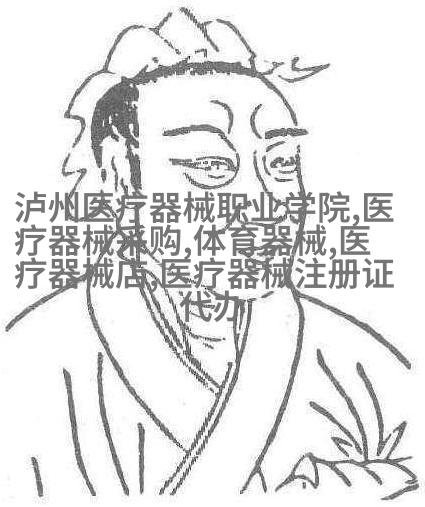 泸州医疗器械职业学院,医
疗器械采购,体育器械,医
疗器械店,医疗器械注册证
代办